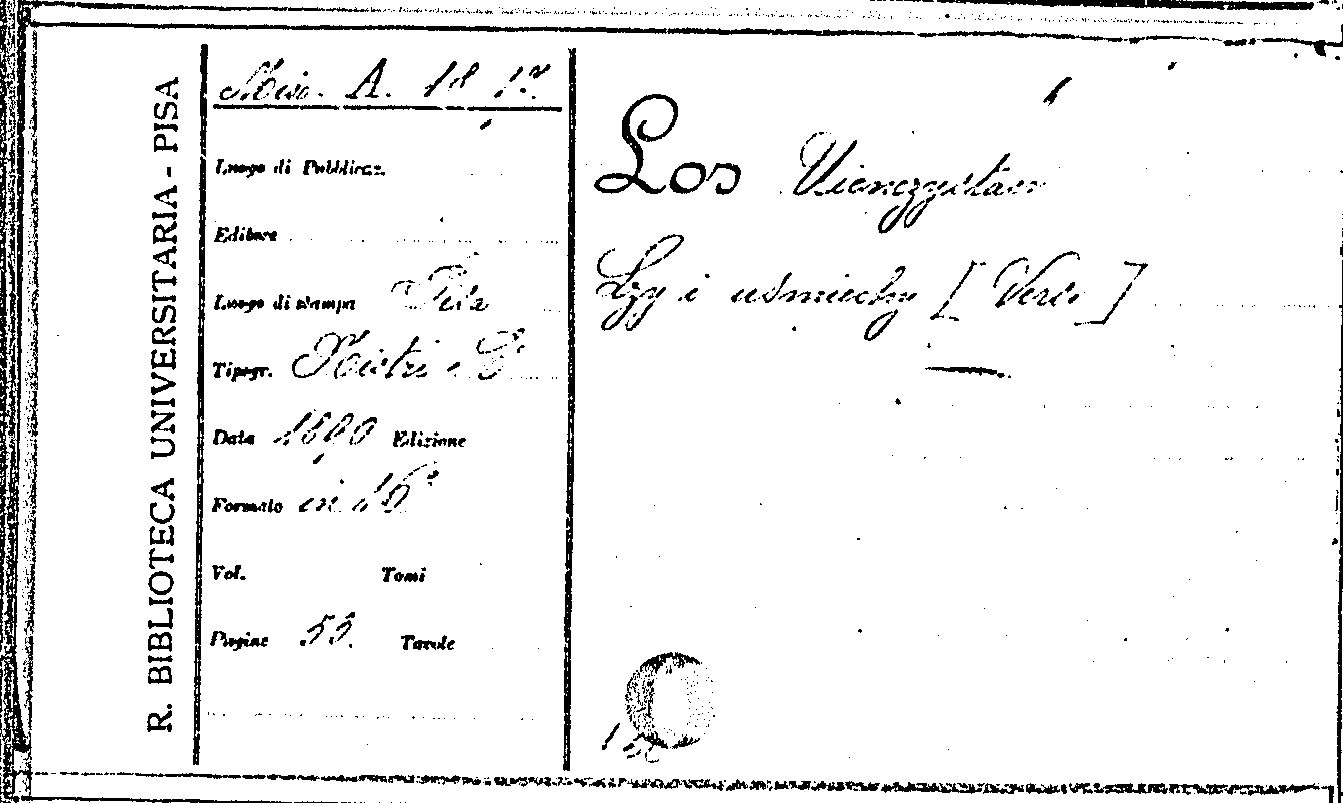 R. BIBLIOTECA UNIVERSITARIA - PISA
Misc. A. 18 17.
Luogo di Pubblicaz.
Editore
Luogo di stampa Pisa
Tipogr. Nistri e C.
Data 1890 Edizione
Formato in 16°
Vol. Tomi
Pagine 55. Tavole
Los
Łzy i uśmiechy [Versi]